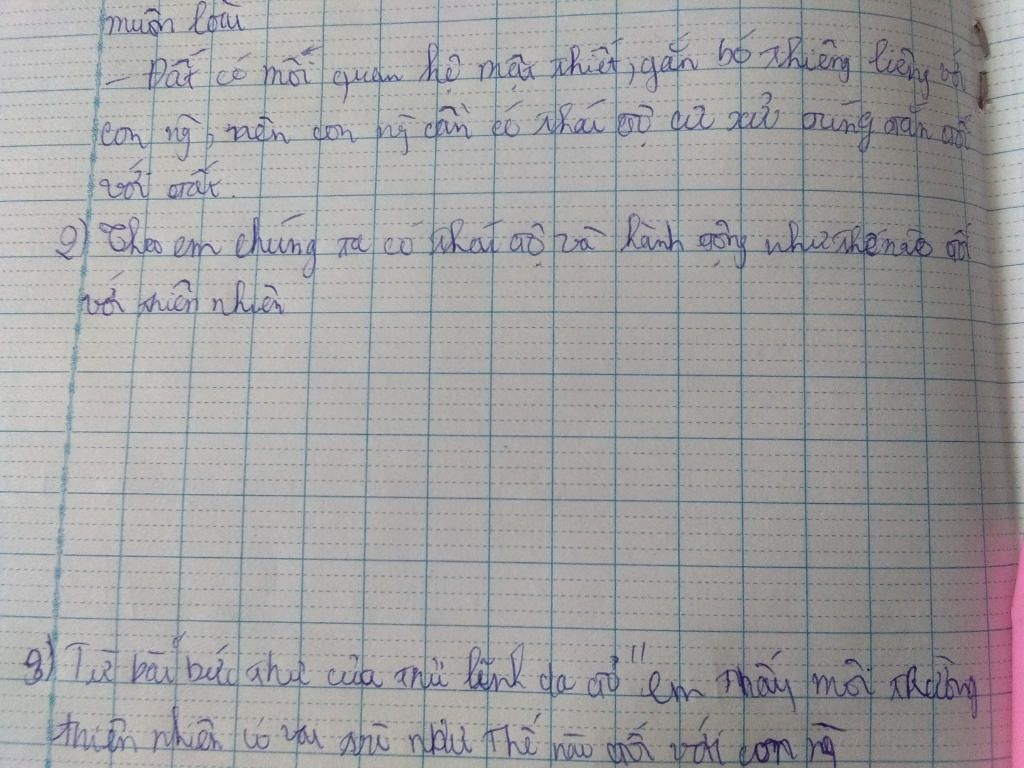 muôn loài
- Đất có mối quan hệ mật thiết, gắn bó thiêng liêng với
con ng̀, nên con ng̀ cần có thái độ cư xử đúng đắn đối
với đất.
2) Theo em chúng ta có thái độ và hành động như thế nào đối
với thiên nhiên
3) Từ bài "bức thư của thủ lĩnh da đỏ" em thấy môi trường
thiên nhiên có vai trò như thế nào đối với con ng̀